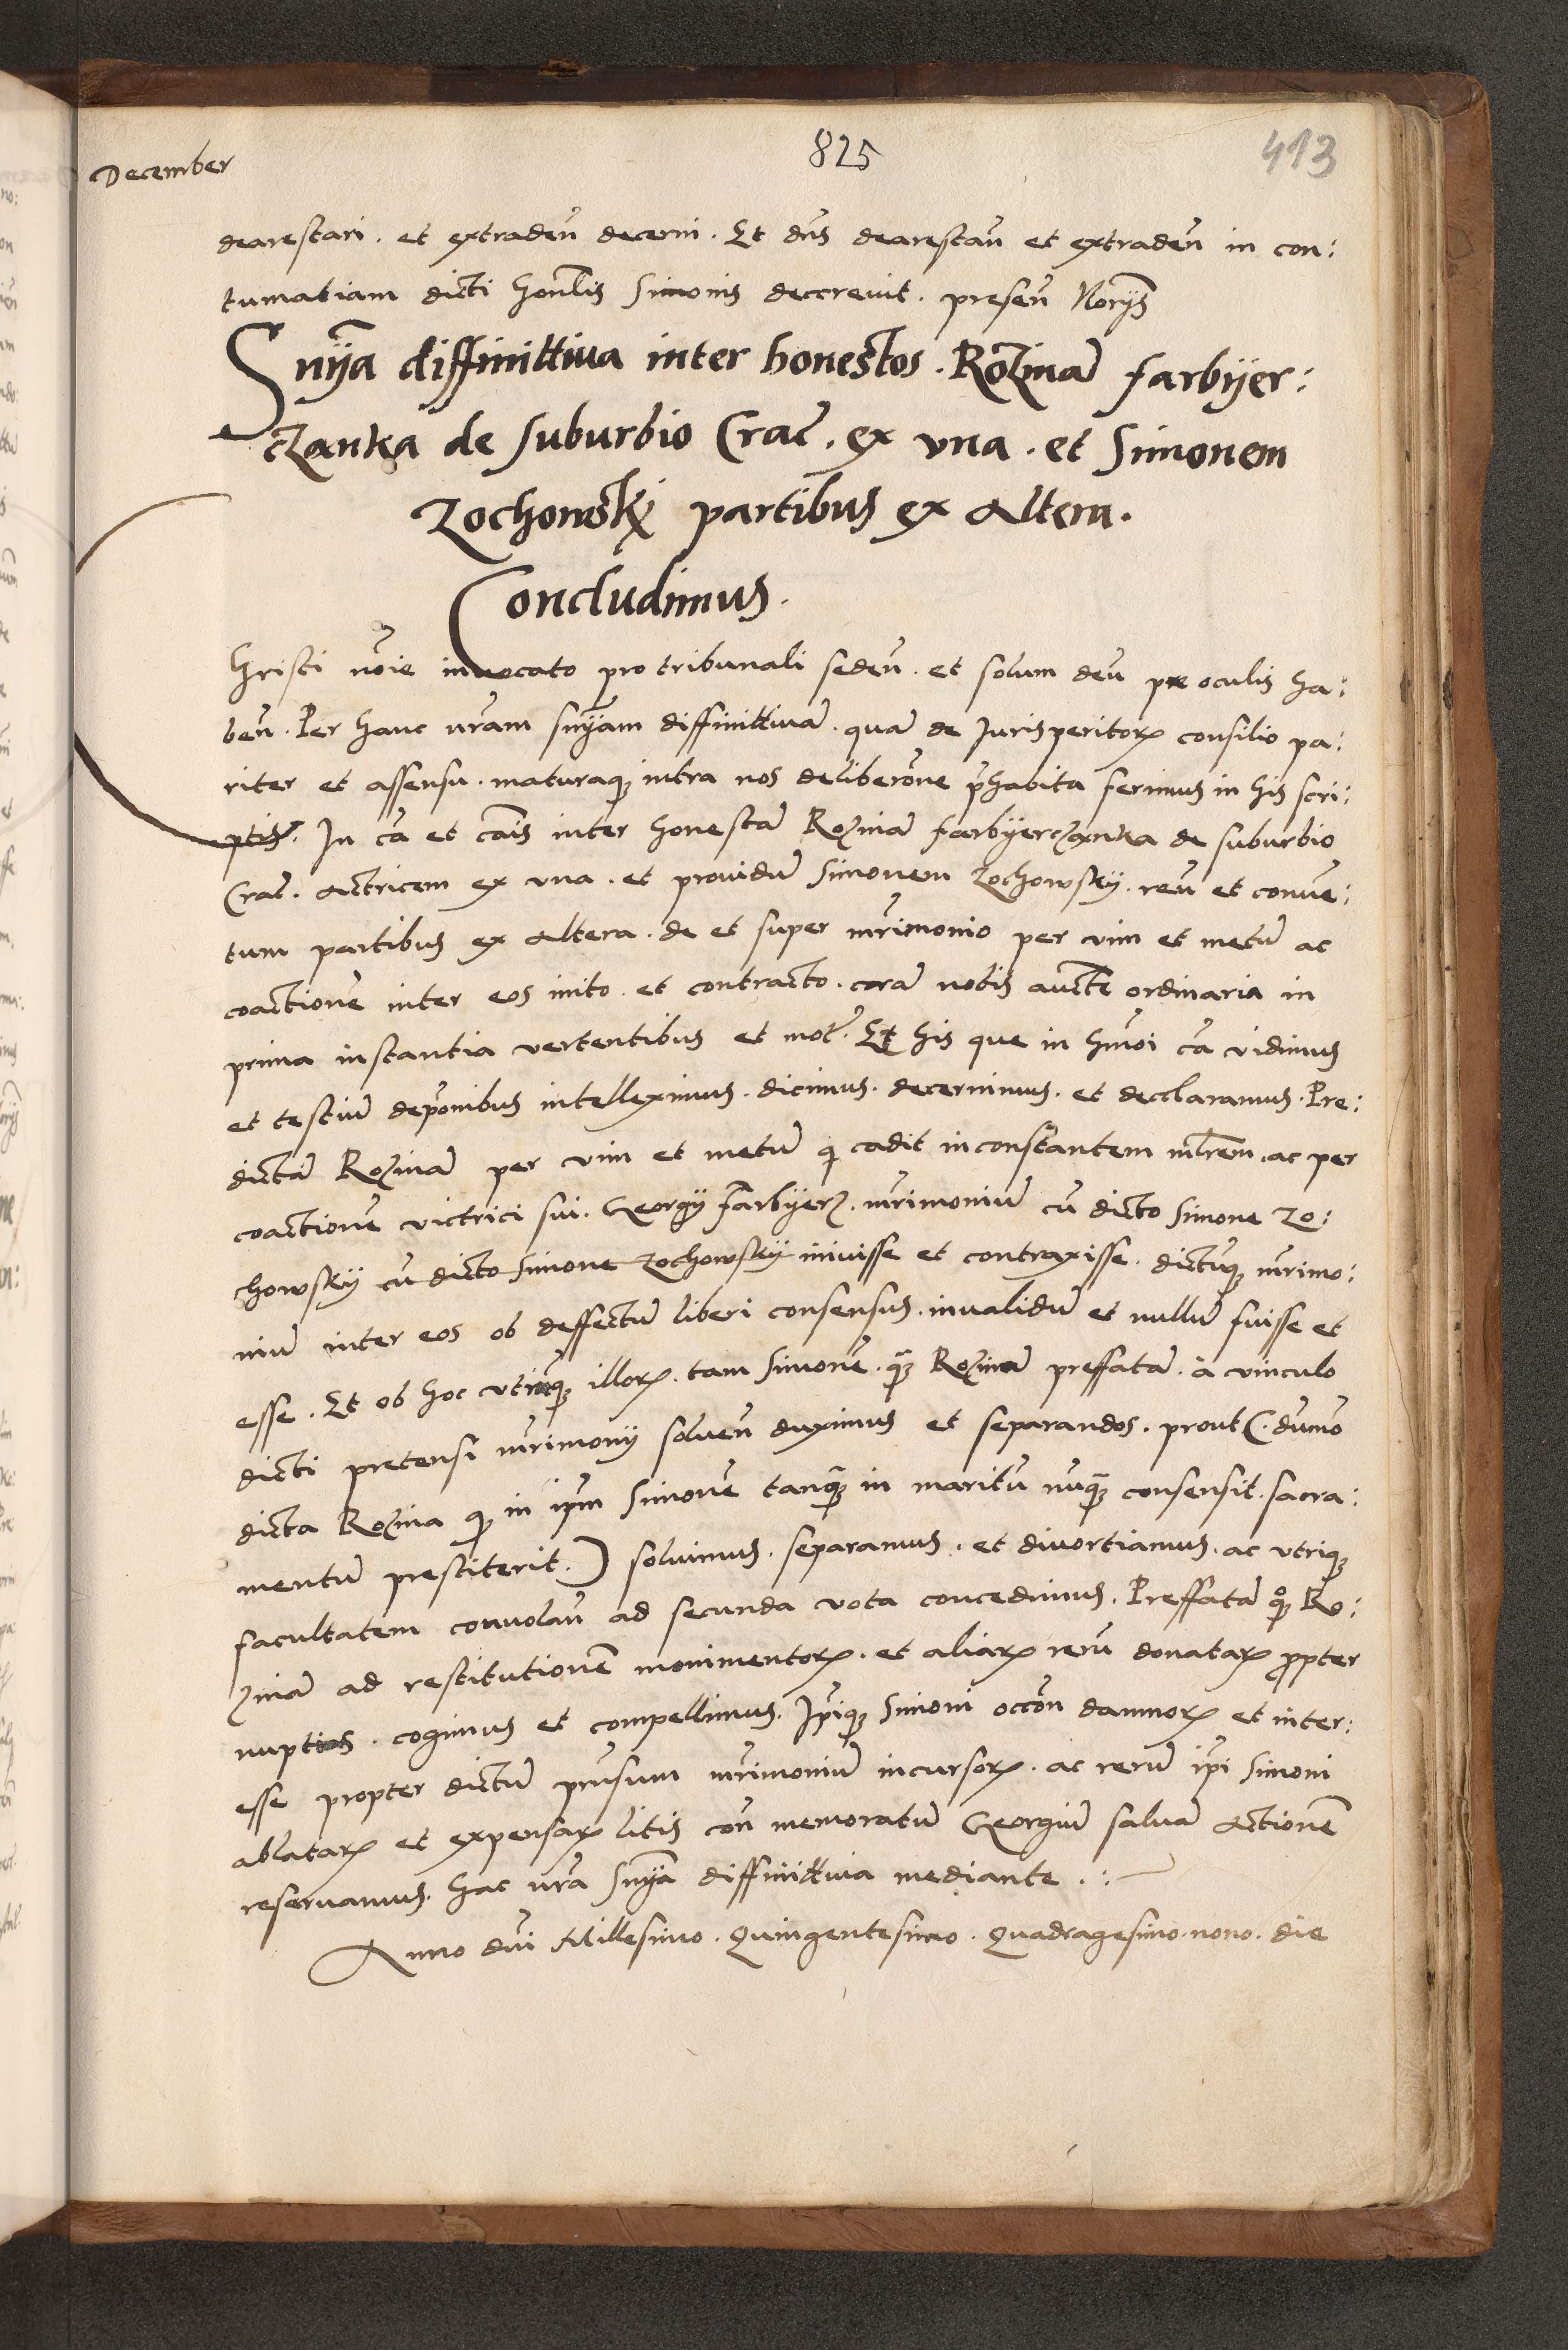 December
825
413
dearestari . et extradeñ decerni . Et dñs dearestañ et extradeñ in con:
tumatiam dicti honlis Simonis decrevit . preseñ Norijs
Snÿa diffinittiua inter honestos . Rozinã Farbÿer:
czanka de suburbio Crac̃ . ex vna . et Simonem
Zochowskÿ partibus ex Altera .
Concludimus .
Christi nõie inuocato pro tribunali sedeñ . et solum deũ pre oculis ha:
beñ . Per hanc nr̃am snÿam diffinittiuã . quã de Jurisperitoꝝ consilio pa:
riter et assensu . maturaqꝫ intra nos deliberõne p̃habita ferimus in his scri:
ptis . In cã et cãis inter honestã Rozinã Farbÿerczanka de suburbio
Crac̃ . Actricem ex vna . et prouidũ Simonem Zochowskÿ . reũ et conuẽ:
tum partibus ex Altera . de et super mr̃imonio per vim et metũ ac
coactionẽ inter eos inito . et contracto . corã nobis auctẽ ordinaria in
prima instantia vertentibus et mot̃ . Et his que in hmõi cã vidimus
et testiũ depõnibus intelleximus . dicimus . decernimus . et decclaramus . Pre:
dictã Rozinã per vim et metũ qi cadit inconstantem mlr̃em . ac per
coactionẽ victrici sui . Georgÿ Farbÿerz . mr̃imoniũ cũ dicto Simone Zo:
chowskÿ cũ dicto Simone Zochowskÿ inivisse et contraxisse . dictũqꝫ mr̃imo:
niũ inter eos ob deffectũ liberi consensus . inualidũ et nullũ fuisse et
esse . Et ob hoc vtrũqꝫ illoꝝ . tam Simonẽ . q̃ꝫ Rozinã preffatã . à vinculo
dicti pretensi mr̃imonÿ solueñ duximus et separandos . prout (. dum̃o
dicta Rozina qꝫ in ip̃m Simonẽ tanq̃ꝫ in maritũ nũq̃ꝫ consensit . sacra:
mentũ prestiterit .) soluimus . separamus . et diuortiamus . ac vtriqꝫ
facultatem conuolañ ad secunda vota concedimus . Preffatã qꝫ Ro:
zinã ad restitutionẽ monimentoꝝ . et aliaꝝ rerũ donataꝝ propter
nuptias . cogimus et compellimus . Ip̃iqꝫ Simoni occõn damnoꝝ et inter:
esse propter dictũ pr̃nsum mr̃imoniũ incursoꝝ . ac rerũ ip̃i Simoni
ablataꝝ et expensaꝝ litis coñ memoratũ Georgiũ saluã Actionẽ
reseruamus . hac nr̃a Snÿa diffinittiua mediante . :
Anno dñi Millesimo . Quingentesimo . Quadragesimo . nono . die